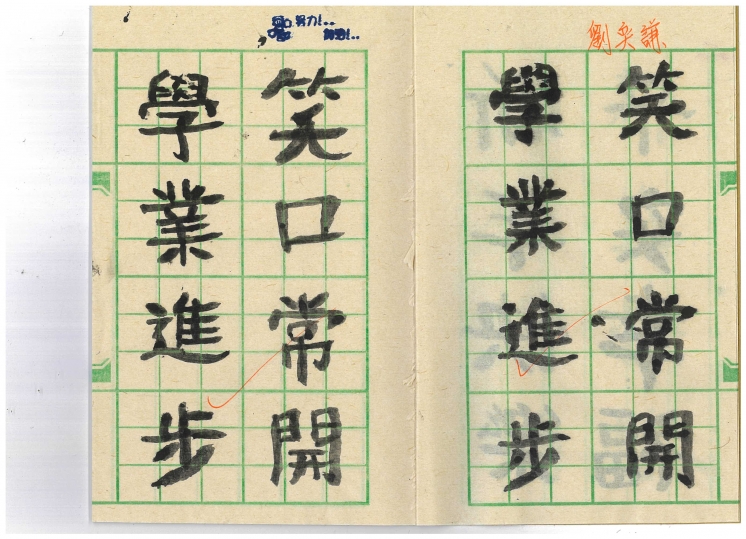 劉奕謙
笑口常開
學業進步
努力!..
笑口常開
學業進步